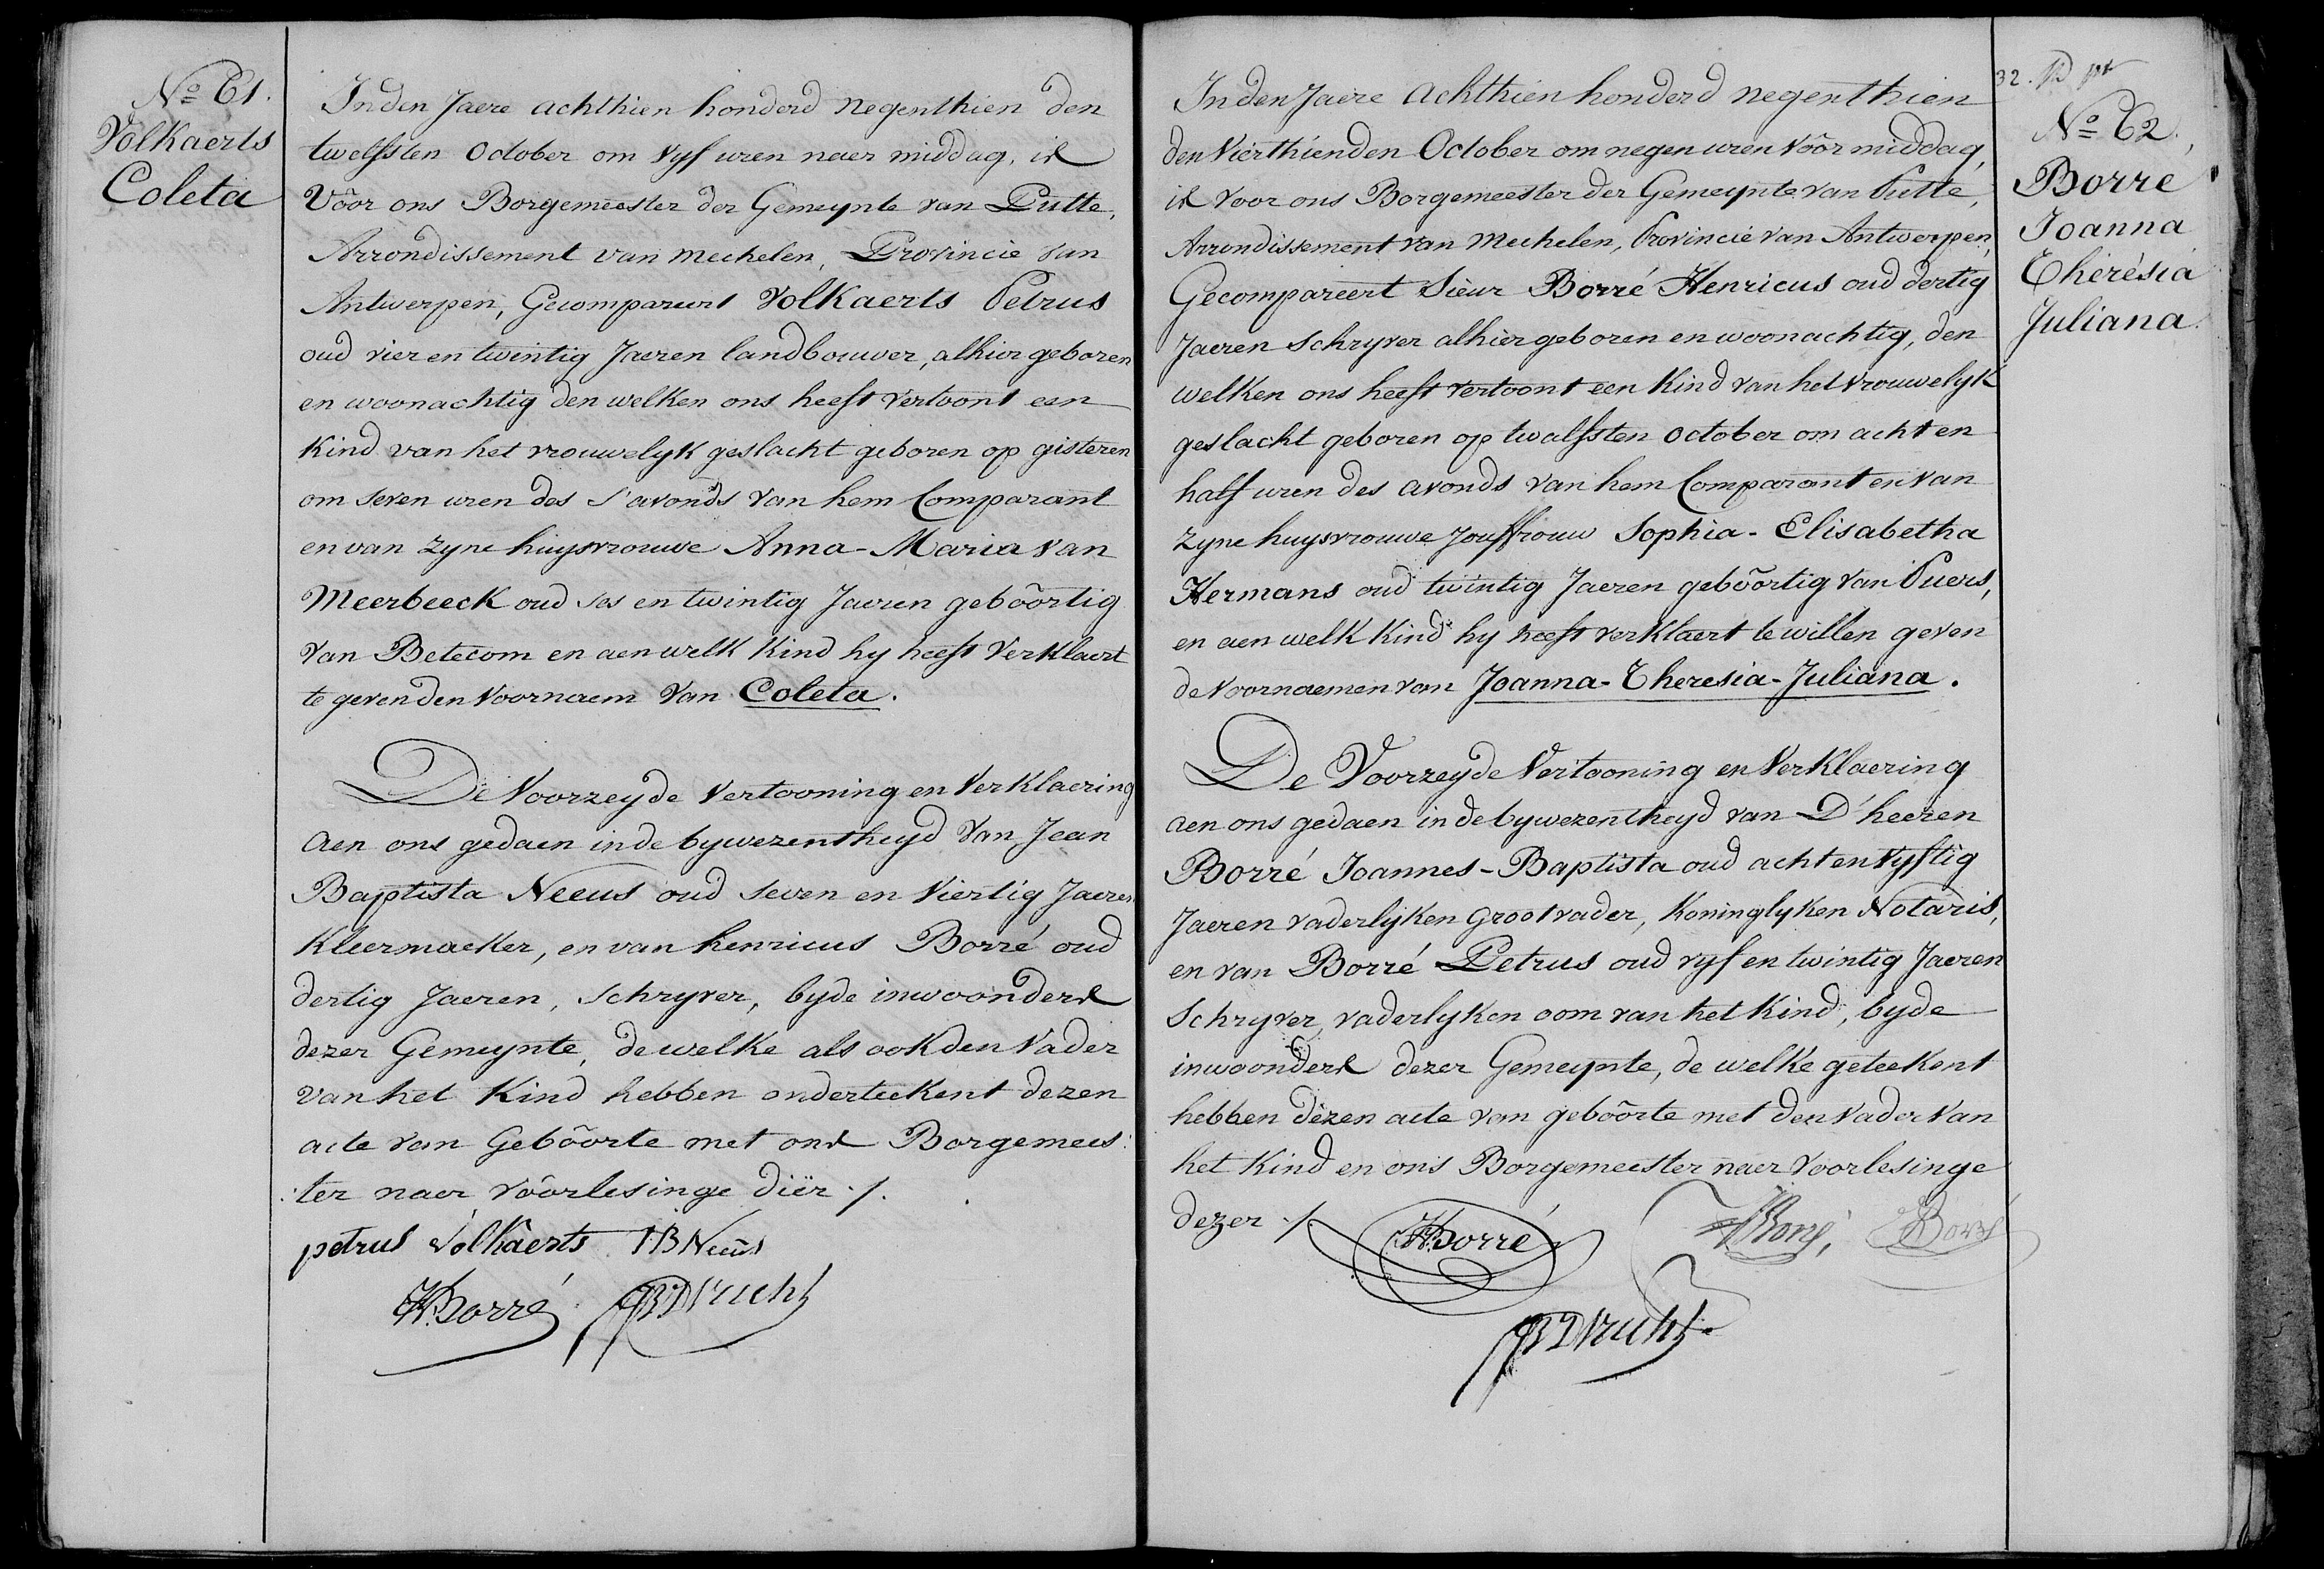 Nº 61.
Volkaerts
Coleta
In den Jaere achthien honderd negenthien den
twelfsten October om vyf uren naer middag, is
Vóór ons Borgemeester der Gemeynte van Putte,
Arrondissement van Mechelen, Provincie van
Antwerpen, Gecompareert Volkaerts Petrus
oud vier en twintig Jaeren landbouwer, alhier geboren
en woonachtig den welken ons heeft vertoont een
Kind van het vrouwelyk geslacht geboren op gisteren
om seven uren des s'avonds van hem Comparant
en van zyne huysvrouwe Anna-Maria van
Meerbeeck oud ses en twintig Jaeren geböortig
van Betecom en aen welk Kind hy heeft Verklaert
te geven den Voornaem van Coleta.
De Voorzeyde Vertooning en Verklaering
aen ons gedaen in de bywezentheyd van Jean
Baptista Neeus oud seven en Viertig Jaeren
Kleermaeker, en van henricus Borré oud
dertig Jaeren, Schryver, byde inwoonders
dezer Gemeynte, de welke als ook den Vader
van het Kind hebben onderteekent dezen
acte van Geböorte met ons Borgemees:
:ter naer vöorlesinge dier ./.
petrus Volkaerts JB Neeus
H. Borré
32.
Nº 62.
Borré
Joanna
Thérésia
Juliana.
In den Jaere Achthien honderd negenthien
den Vierthienden October om negen uren vöor middag,
is voor ons Borgemeester der Gemeynte van Putte,
Arrondissement van Mechelen, Provincie van Antwerpen,
Gecompareert Sieur Borré Henricus oud dertig
Jaeren Schryver alhier geboren en woonachtig, den
welken ons heeft vertoont een Kind van het vrouwelyk
geslacht geboren op twalfsten October om acht en
half uren des avonds van hem Comparant en van
zyne huysvrouwe Jouffrouw Sophia-Elisabetha
Hermans oud twintig Jaeren geböortig van Puers,
en aen welk Kind hy heeft verklaert te willen geven
de Voornaemen van Joanna-Theresia-Juliana.
De Voorzeyde Vertooning en Verklaering
aen ons gedaen in de bywezentheyd van D'heeren
Borré Joannes-Baptista oud acht en Vyftig
Jaeren vaderlyken Grootvader, Koninglyken Notaris,
en van Borré Petrus oud vyf en twintig Jaeren
Schryver, vaderlyken oom van het Kind, byde
inwoonders dezer Gemeynte, de welke geteekent
hebben dezen acte van geböorte met den Vader van
het Kind en ons Borgemeester naer Voorlesinge
dezer ./.
H. Borré Borré